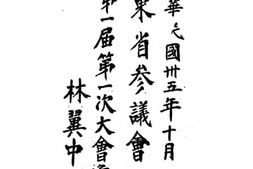 華民國卅五年十月
東省參議會
第一屆第一次大會
林翼中